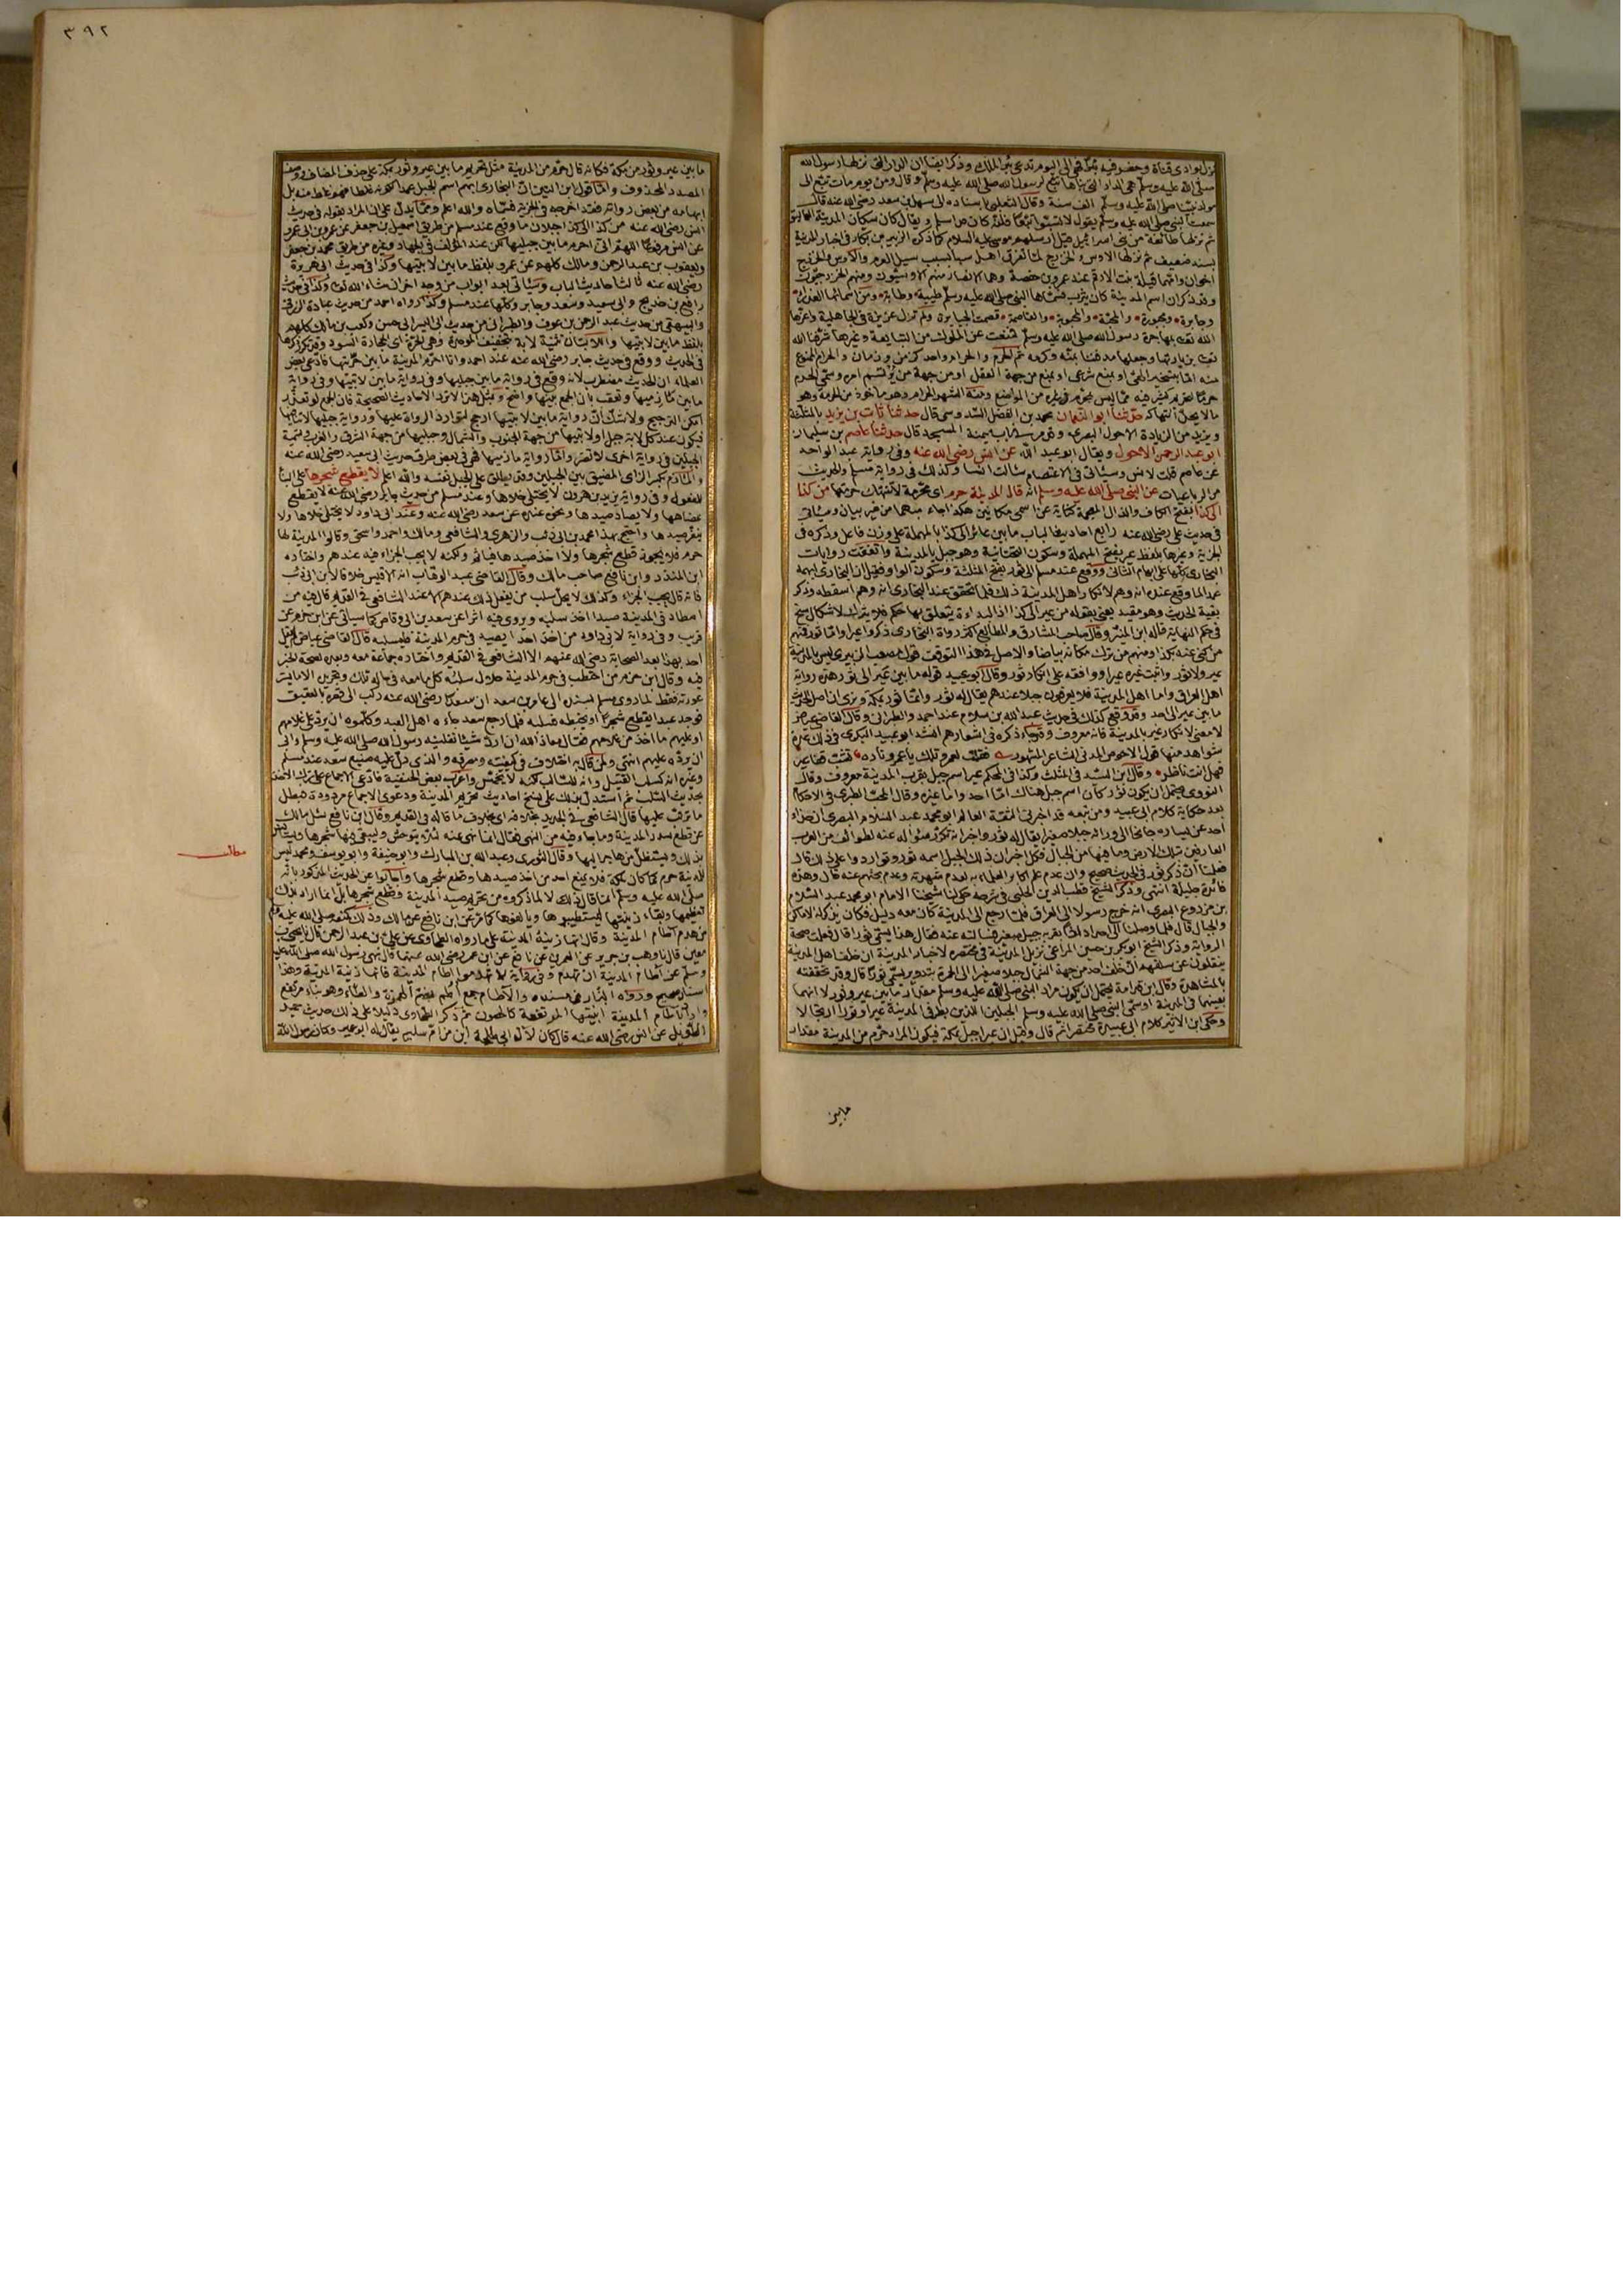 نزل بوادي قناة وحضر فيه بئرا فهي الى اليوم تدعى بئر الملك وذكر ايضا ان الدار التي نزلها رسول الله
صلى الله عليه وسلم هي الدار التي بناها تبع لرسول الله صلى الله عليه وسلم وقال ومن يوم مات تبع الى
مولد نبينا صلى الله عليه وسلم الف سنة وقال الثعلبي باسناده الى سهل بن سعد رضي الله عنه قال
سمعت النبي صلى الله عليه وسلم يقول لا تسبوا تبعا فانه كان قد اسلم ويقال كان سكان المدينة العماليق
ثم نزلها طائفة من بني اسرائيل قيل ارسلهم موسى عليه السلام كما ذكره الزبير بن بكار في اخبار المدينة
بسند ضعيف ثم نزلها الاوس والخزرج لما تفرق اهل سبا بسبب سيل العرم والاوس والخزرج
اخوان وامهما قيلة بنت الارقم بن عمرو بن جفنة وهما الانصار منهم الاوسيون ومنهم الخزرجيون
وقد ذكر ان اسم المدينة كان يثرب فسماها النبي صلى الله عليه وسلم طيبة وطابة ومن اسمائها العذراء
وجابرة ومجبورة والمحبة والمحبوبة والقاصمة قصمت الجبابرة ولم تزل عزيزة في الجاهلية واعزها
الله تعالى بمهاجرة رسول الله صلى الله عليه وسلم فمنعت عن الملوك من التبابعة وغيرها شرفها الله
منه اما بتسخير الهي او بمنع شرعي او بمنع من جهة العقل او من جهة من يرتسم امره وسمي الحرم
حرما لتحريم كثير فيه مما ليس بمحرم في غيره من المواضع ومنه الشهر الحرام وهو ماخوذ من الحرمة وهو
ما لا يحل انتهاكه حدثنا ابو النعمان محمد بن الفضل السدوسي قال حدثنا ثابت بن يزيد بالمثلثة
ويزيد من الزيادة الاحول البصري وقد مر في باب ميمنة المسجد قال حدثنا عاصم بن سليمان
ابو عبد الرحمن الاحول ويقال ابو عبد الله عن انس رضي الله عنه وفي رواية عبد الواحد
عن عاصم قلت لانس وسيأتي في الاعتصام سالت انسا وكذلك في رواية مسلم والحديث
من الرباعيات عن النبي صلى الله عليه وسلم انه قال المدينة حرم اي محرمة لا تنتهك حرمتها من كذا
الى كذا بفتح الكاف والذال المعجمة كناية عن اسمي مكانين هكذا جاء مبهما من غير بيان وسيأتي
في حديث علي رضي الله عنه رابع احاديث الباب ما بين عائر الى كذا بالمهملة على وزن فاعل وذكره في
الجزية وغيرها بلفظ عير بفتح المهملة وسكون التحتانية وهو جبل بالمدينة واتفقت روايات
البخاري كلها على ابهام الثاني ووقع عند مسلم الى ثور بفتح المثلثة وسكون الواو فقيل ان البخاري ابهمه
عمدا لما وقع عنده انه وهم لانكار اهل المدينة ذلك فلما تحقق عند البخاري انه وهم اسقطه وذكر
بقية الحديث وهو مقيد يعني بقوله من عير الى كذا اذ البداءة يتعلق بها حكم فلا يترك لاشكال سنح
في حكم النهاية قاله ابن المنير وقال صاحب المشارق والمطالع اكثر رواة البخاري ذكروا عيرا واما ثور فمنهم
من كنى عنه بكذا ومنهم من ترك مكانه بياضا والاصل في هذا التوقف قول مصعب الزبيري ليس بالمدينة
عير ولا ثور واثبت غيره عيرا ووافقه على انكار ثور وقال ابو عبيد قوله ما بين عير الى ثور هذه رواية
اهل العراق واما اهل المدينة فلا يعرفون جبلا عندهم يقال له ثور وانما ثور بمكة ونرى ان اصل الحديث
ما بين عير الى احد وقد وقع كذلك في حديث عبد الله بن سلام عند احمد والطبراني وقال القاضي عياض
لا معنى لانكار عير بالمدينة فانه معروف وقد جاء ذكره في اشعارهم انشد ابو عبيد البكري في ذلك عدة
شواهد منها قول الاحوص المدني الشاعر المشهور فقلت لعمرو تلك يا عمرو ناره تشب قفا عير
فهل انت ناظر وقال ابن السيد في المثلث وكذا في المحكم عير اسم جبل بقرب المدينة معروف وقال
النووي يحتمل ان يكون ثور كان اسم جبل هناك اما احد واما غيره وقال المحب الطبري في الاحكام
بعد حكاية كلام ابي عبيد ومن تبعه قد اخبرني الثقة العالم ابو محمد عبد السلام البصري ان حذاء
احد عن يساره جانحا الى ورائه جبلا صغيرا يقال له ثور واخبر انه تكرر سؤاله عنه لطوائف من العرب
العارفين بتلك الارض وما فيها من الجبال فكل اخبر ان ذلك الجبل اسمه ثور وتواردوا على ذلك قال
فعلمنا ان ذكر ثور في الحديث صحيح وان عدم علم اكابر العلماء به لعدم شهرته وعدم بحثهم عنه قال وهذه
فائدة جليلة انتهى وذكر الشيخ قطب الدين الحلبي في شرحه حكى لنا شيخنا الامام ابو محمد عبد السلام
بن مزروع البصري انه خرج رسولا الى العراق فلما رجع الى المدينة كان معه دليل فكان يذكر له الاماكن
والجبال قال فلما وصلنا الى احد اذا بقربه جبل صغير فسالته عنه فقال هذا يسمى ثورا قال فعلمت صحة
الرواية وذكر الشيخ ابو بكر بن حسين المراغي نزيل المدينة في مختصره لاخبار المدينة ان خلف اهل المدينة
ينقلون عن سلفهم ان خلف احد من جهة الشمال جبلا صغيرا الى الحمرة بتدوير يسمى ثورا قال وقد تحققته
بالمشاهدة وقال ابن قدامة يحتمل ان يكون مراد النبي صلى الله عليه وسلم مقدار ما بين عير وثور لا انهما
بعينهما في المدينة او سمى النبي صلى الله عليه وسلم الجبلين الذين بطرفي المدينة عيرا وثورا ارتجالا
وحكى ابن الاثير كلام ابي عبيد مختصرا ثم قال وقيل ان عيرا جبل بمكة فيكون المراد حرم من المدينة مقدار
مابين
٣٩٢
ما بين عير وثور من مكة فكانه قال حرم من المدينة مثل تحريم ما بين عير وثور بمكة على حذف المضاف ووصف
المصدر المحذوف واما قول ابن التين ان البخاري ابهم اسم الجبل عمدا لكونه غلطا فهو غلط منه بل
ابهامه من بعض رواته فقد اخرجه في الجزية فسماه والله اعلم ومما يدل على ان المراد بقوله في حديث
انس رضي الله عنه من كذا الى كذا جبلان ما وقع عند مسلم من طريق اسمعيل بن جعفر عن عمرو بن ابي عمرو
عن انس مرفوعا اللهم اني احرم ما بين جبليها لكن عند المؤلف في الجهاد وغيره من طريق محمد بن جعفر
ويعقوب بن عبد الرحمن ومالك كلهم عن عمرو بلفظ ما بين لابتيها وكذا في حديث ابي هريرة
رضي الله عنه ثالث احاديث الباب وسيأتي بعد ابواب من وجه اخر ان شاء الله تعالى وكذا في حديث
رافع بن خديج وابي سعيد وسعد وجابر وكلها عند مسلم وكذا رواه احمد من حديث عبادة الزرقي
والبيهقي من حديث عبد الرحمن بن عوف والطبراني من حديث ابي اليسر وابي حسن وكعب بن مالك كلهم
بلفظ ما بين لابتيها واللابتان تثنية لابة بتخفيف الموحدة وهي الحرة اي الحجارة السود وقد تكرر ذكرها
في الحديث ووقع في حديث جابر رضي الله عنه عند احمد وانا احرم المدينة ما بين حرتيها فادعى بعض
العلماء ان الحديث مضطرب لانه وقع في رواية ما بين جبليها وفي رواية ما بين لابتيها وفي رواية
ما بين مازميها وتعقب بان الجمع بينها واضح وبمثل هذا لا ترد الاحاديث الصحيحة فان الجمع لو تعذر
امكن الترجيح ولا شك ان رواية ما بين لابتيها ارجح لتوارد الرواة عليها ورواية جبليها لا تنافيها
فيكون عند كل لابة جبل او لابتيها من جهة الجنوب والشمال وجبليها من جهة الشرق والغرب وتسمية
الجبلين في رواية اخرى لا تضر واما رواية مازميها فهي في بعض طرق حديث ابي سعيد رضي الله عنه
والمازم بكسر الزاي المضيق بين الجبلين وقد يطلق على الجبل نفسه والله اعلم لا يقطع شجرها على البناء
للمفعول وفي رواية يزيد بن هرون لا يختلى خلاها وعند مسلم من حديث جابر رضي الله عنه لا يقطع
عضاهها ولا يصاد صيدها ونحوه عنده عن سعد رضي الله عنه وعند ابي داود لا يختلى خلاها ولا
ينفر صيدها واحتج بهذا محمد بن ابي ذئب والزهري والشافعي ومالك واحمد واسحق وقالوا المدينة لها
حرم فلا يجوز قطع شجرها ولا اخذ صيدها فياثم ولكنه لا يجب الجزاء فيه عندهم واختاره
ابن المنذر وابن نافع صاحب مالك وقال القاضي عبد الوهاب انه الاقيس خلافا لابن ابي ذئب
فانه قال يجب الجزاء وكذلك لا يحل سلب من يفعل ذلك عندهم الا عند الشافعي في القديم قال فيه من
اصطاد في المدينة صيدا اخذ سلبه ويروي فيه اثرا عن سعد بن ابي وقاص كما سيأتي عن ابن حزم عن
قريب وفي رواية لابي داود من اخذ احدا يصيد في حرم المدينة فليسلبه قال القاضي عياض لم يقل
احد بهذا بعد الصحابة رضي الله عنهم الا الشافعي في القديم واختاره جماعة معه وبعده لصحة الخبر
فيه وقال ابن حزم من احتطب في حرم المدينة حلال سلبه كل ما معه في حاله تلك وتجريده الا ما يستر
عورته فقط لما روى مسلم بسنده الى عامر بن سعد ان سعدا رضي الله عنه ركب الى قصره بالعقيق
فوجد عبدا يقطع شجرا او يخبطه فسلبه فلما رجع سعد جاءه اهل العبد وكلموه ان يرد على غلامهم
او عليهم ما اخذ من غلامهم فقال معاذ الله ان ارد شيئا نفلنيه رسول الله صلى الله عليه وسلم وابى
ان يرده عليهم انتهى ولمن قال به اختلاف في كيفيته ومصرفه والذي دل عليه صنيع سعد عند مسلم
وغيره انه كسلب القتيل وانه للسالب لكنه لا يخمس واغرب بعض الحنفية فادعى الاجماع على ترك الاخذ
بحديث السلب ثم استدل بذلك على نسخ احاديث تحريم المدينة ودعوى الاجماع مردودة فبطل
ما ترتب عليها قال الشافعي في الجديد بخلافه اي بخلاف ما قاله في القديم وقال ابن نافع سئل مالك
عن قطع سدر المدينة وما جاء فيه من النهي فقال انما نهي عنه لئلا يتوحش وليبقى فيها شجرها ويستأنس
بذلك ويستظل من هاجر اليها وقال الثوري وعبد الله بن المبارك وابو حنيفة وابو يوسف ومحمد ليس
للمدينة حرم كما كان لمكة فلا يمنع احد من اخذ صيدها وقطع شجرها واجابوا عن الحديث المذكور بانه
صلى الله عليه وسلم انما قال ذلك لا لما ذكروه من تحريم صيد المدينة وقطع شجرها بل انما اراد بذلك
تعظيمها وبقاء زينتها ليستطيبوها ويالفوها كما مر عن ابن نافع عن مالك وذلك كمنعه صلى الله عليه وسلم
من هدم آطام المدينة وقال انها زينة المدينة على ما رواه الطحاوي عن علي بن عبد الرحمن قال نا يحيى بن
معين قال نا وهب بن جرير عن العمري عن نافع عن ابن عمر رضي الله عنهما قال نهى رسول الله صلى الله عليه
وسلم عن آطام المدينة ان تهدم وفي رواية لا تهدموا آطام المدينة فانها زينة المدينة وهذا
اسناد صحيح ورواه البزار في مسنده والآطام جمع أطم بضم الهمزة والطاء وهو بناء مرتفع
واراد بآطام المدينة ابنيتها المرتفعة كالحصون ثم ذكر الطحاوي دليلا على ذلك حديث حميد
الطويل عن انس رضي الله عنه قال كان لآل ابي طلحة ابن من ام سليم يقال له ابو عمير وكان رسول الله
مطلب